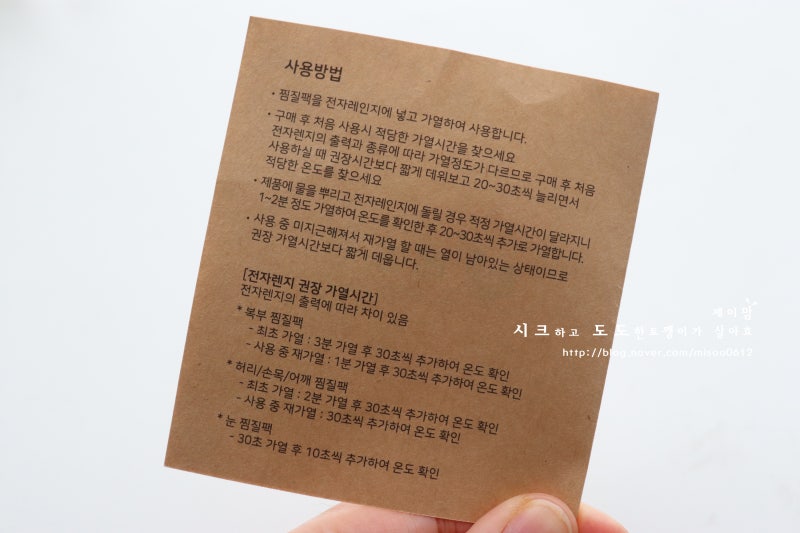 사용방법
• 찜질팩을 전자레인지에 넣고 가열하여 사용합니다.
• 구매 후 처음 사용시 적당한 가열시간을 찾으세요
전자렌지의 출력과 종류에 따라 가열정도가 다르므로 구매 후 처음
사용하실 때 권장시간보다 짧게 데워보고 20~30초씩 늘리면서
적당한 온도를 찾으세요
• 제품에 물을 뿌리고 전자레인지에 돌릴 경우 적정 가열시간이 달라지니
1~2분 정도 가열하여 온도를 확인한 후 20~30초씩 추가로 가열합니다.
• 사용 중 미지근해져서 재가열 할 때는 열이 남아있는 상태이므로
권장 가열시간보다 짧게 데웁니다.
[전자렌지 권장 가열시간]
전자렌지의 출력에 따라 차이 있음
* 복부 찜질팩
- 최초 가열 : 3분 가열 후 30초씩 추가하여 온도 확인
- 사용 중 재가열 : 1분 가열 후 30초씩 추가하여 온도 확인
* 허리/손목/어깨 찜질팩
- 최초 가열 : 2분 가열 후 30초씩 추가하여 온도 확인
- 사용 중 재가열 : 30초씩 추가하여 온도 확인
* 눈 찜질팩
- 30초 가열 후 10초씩 추가하여 온도 확인
제이맘
시크하고 도도한토깽이가 살아요
http://blog.naver.com/misoo0612